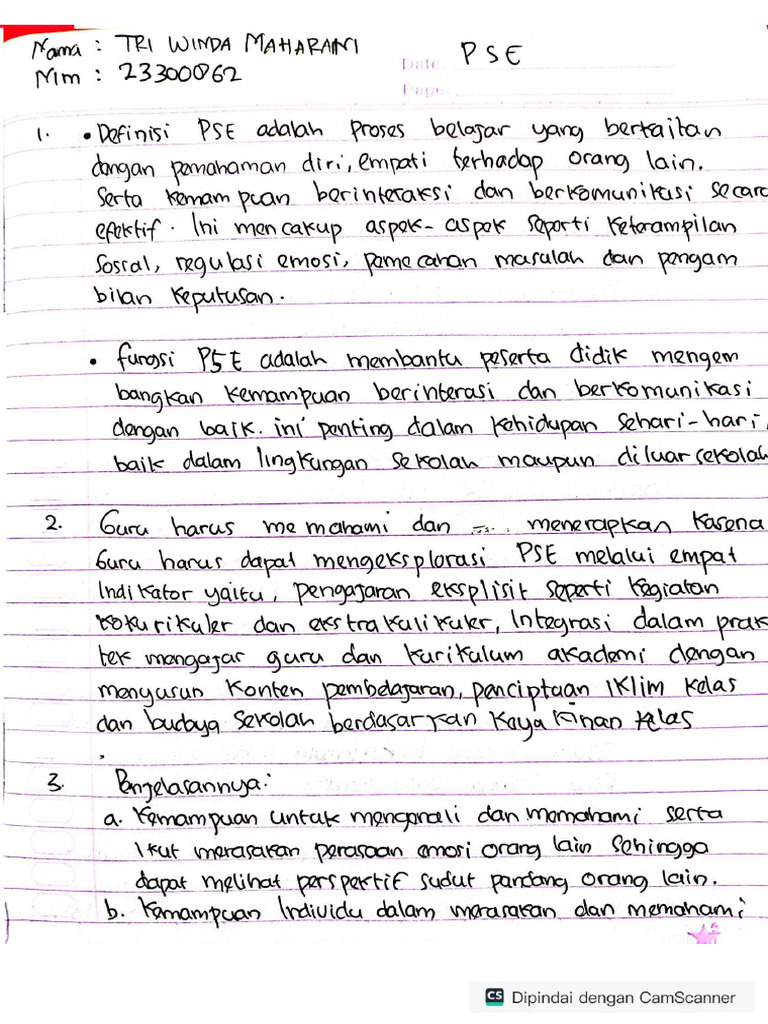 Nama : TRI WINDA MAHARANI
PSE
Date.
Nim : 23300862
Page.
1. • Definisi PSE adalah proses belajar yang bertaitan
dengan pemahaman diri, empati terhadap orang lain.
Serta kemampuan berinteraksi dan berkomunikasi secara
efektif. Ini mencakup aspek-aspek seperti keterampilan
Sosial, regulasi emosi, pemecahan masalah dan pengam
bilan keputusan.
• fungsi PSE adalah membantu peserta didik mengem
bangkan kemampuan berinterasi dan berkomunikasi
dengan baik. ini penting dalam kehidupan sehari-hari,
baik dalam lingkungan sekolah maupun diluar sekolah
2. Guru harus memahami dan menerapkan karena
Guru harus dapat mengeksplorasi PSE melalui empat
Indikator yaitu, pengajaran eksplisit seperti kegiatan
kokurikuler dan ekstrakulikuler, Integrasi dalam prak
tek mengajar guru dan kurikulum akademi dengan
menyusun konten pembelajaran, penciptaan iklim kelas
dan budaya sekolah berdasarkan keyakinan kelas
3. Penjelasannya:
a. Kemampuan untuk mengenali dan memahami serta
Ikut merasakan perasaan emosi orang lain sehingga
dapat melihat perspektif sudut pandang orang lain.
b. Kemampuan Individu dalam merasakan dan memahami
CS Dipindai dengan CamScanner